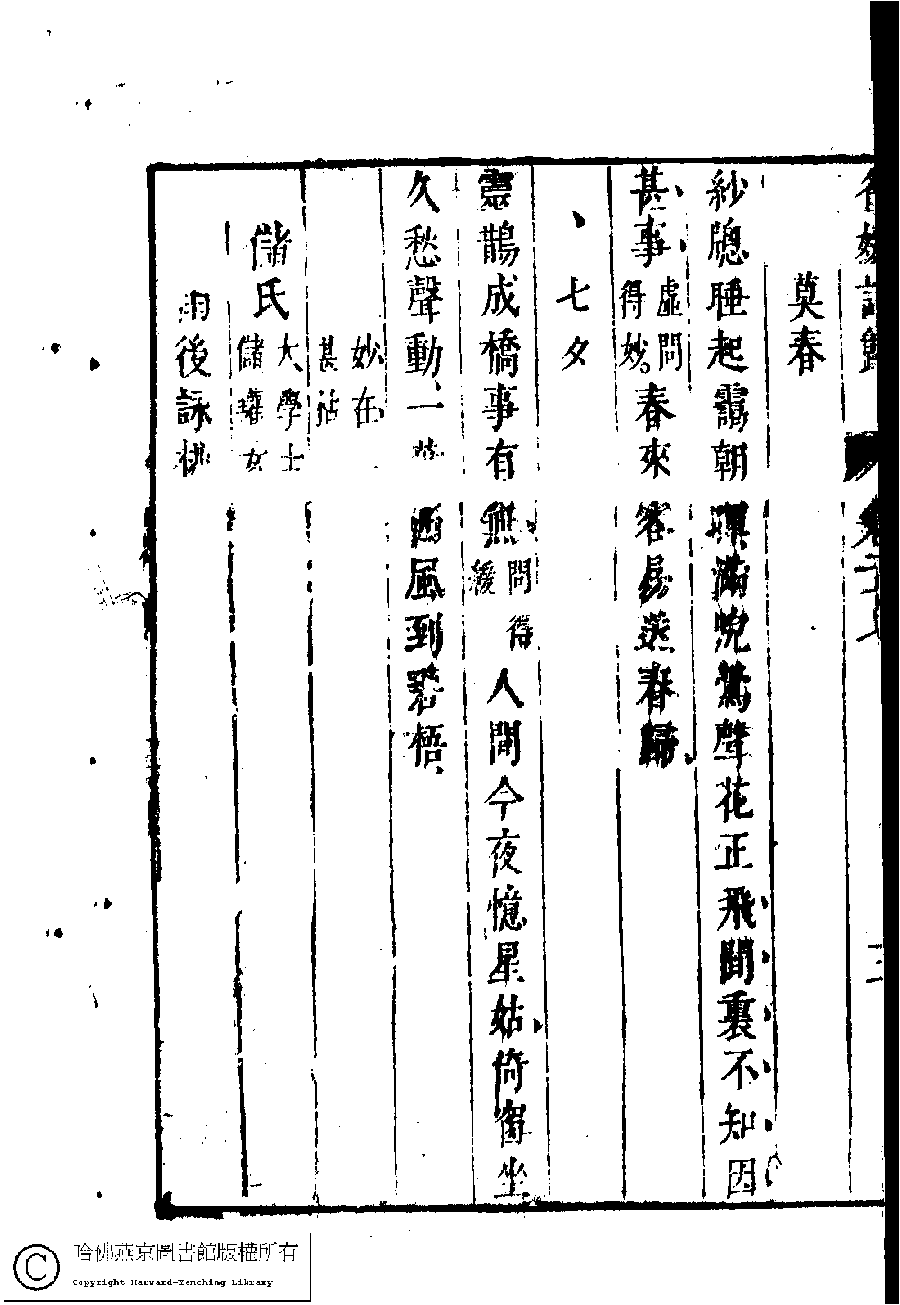 名媛詩歸 卷二十八 三
莫春
紗牕睡起靄朝暉滿院鶯聲花正飛閒裏不知因
甚事虛問得妙春來容易送春歸
七夕
靈鵲成橋事有無問得緩人間今夜憶星姑倚窗坐
久愁聲動一葉西風到碧梧
妙在甚活
儲氏大學士儲瓘女
雨後詠桃
哈佛燕京圖書館版權所有
Copyright Harvard-Yenching Library